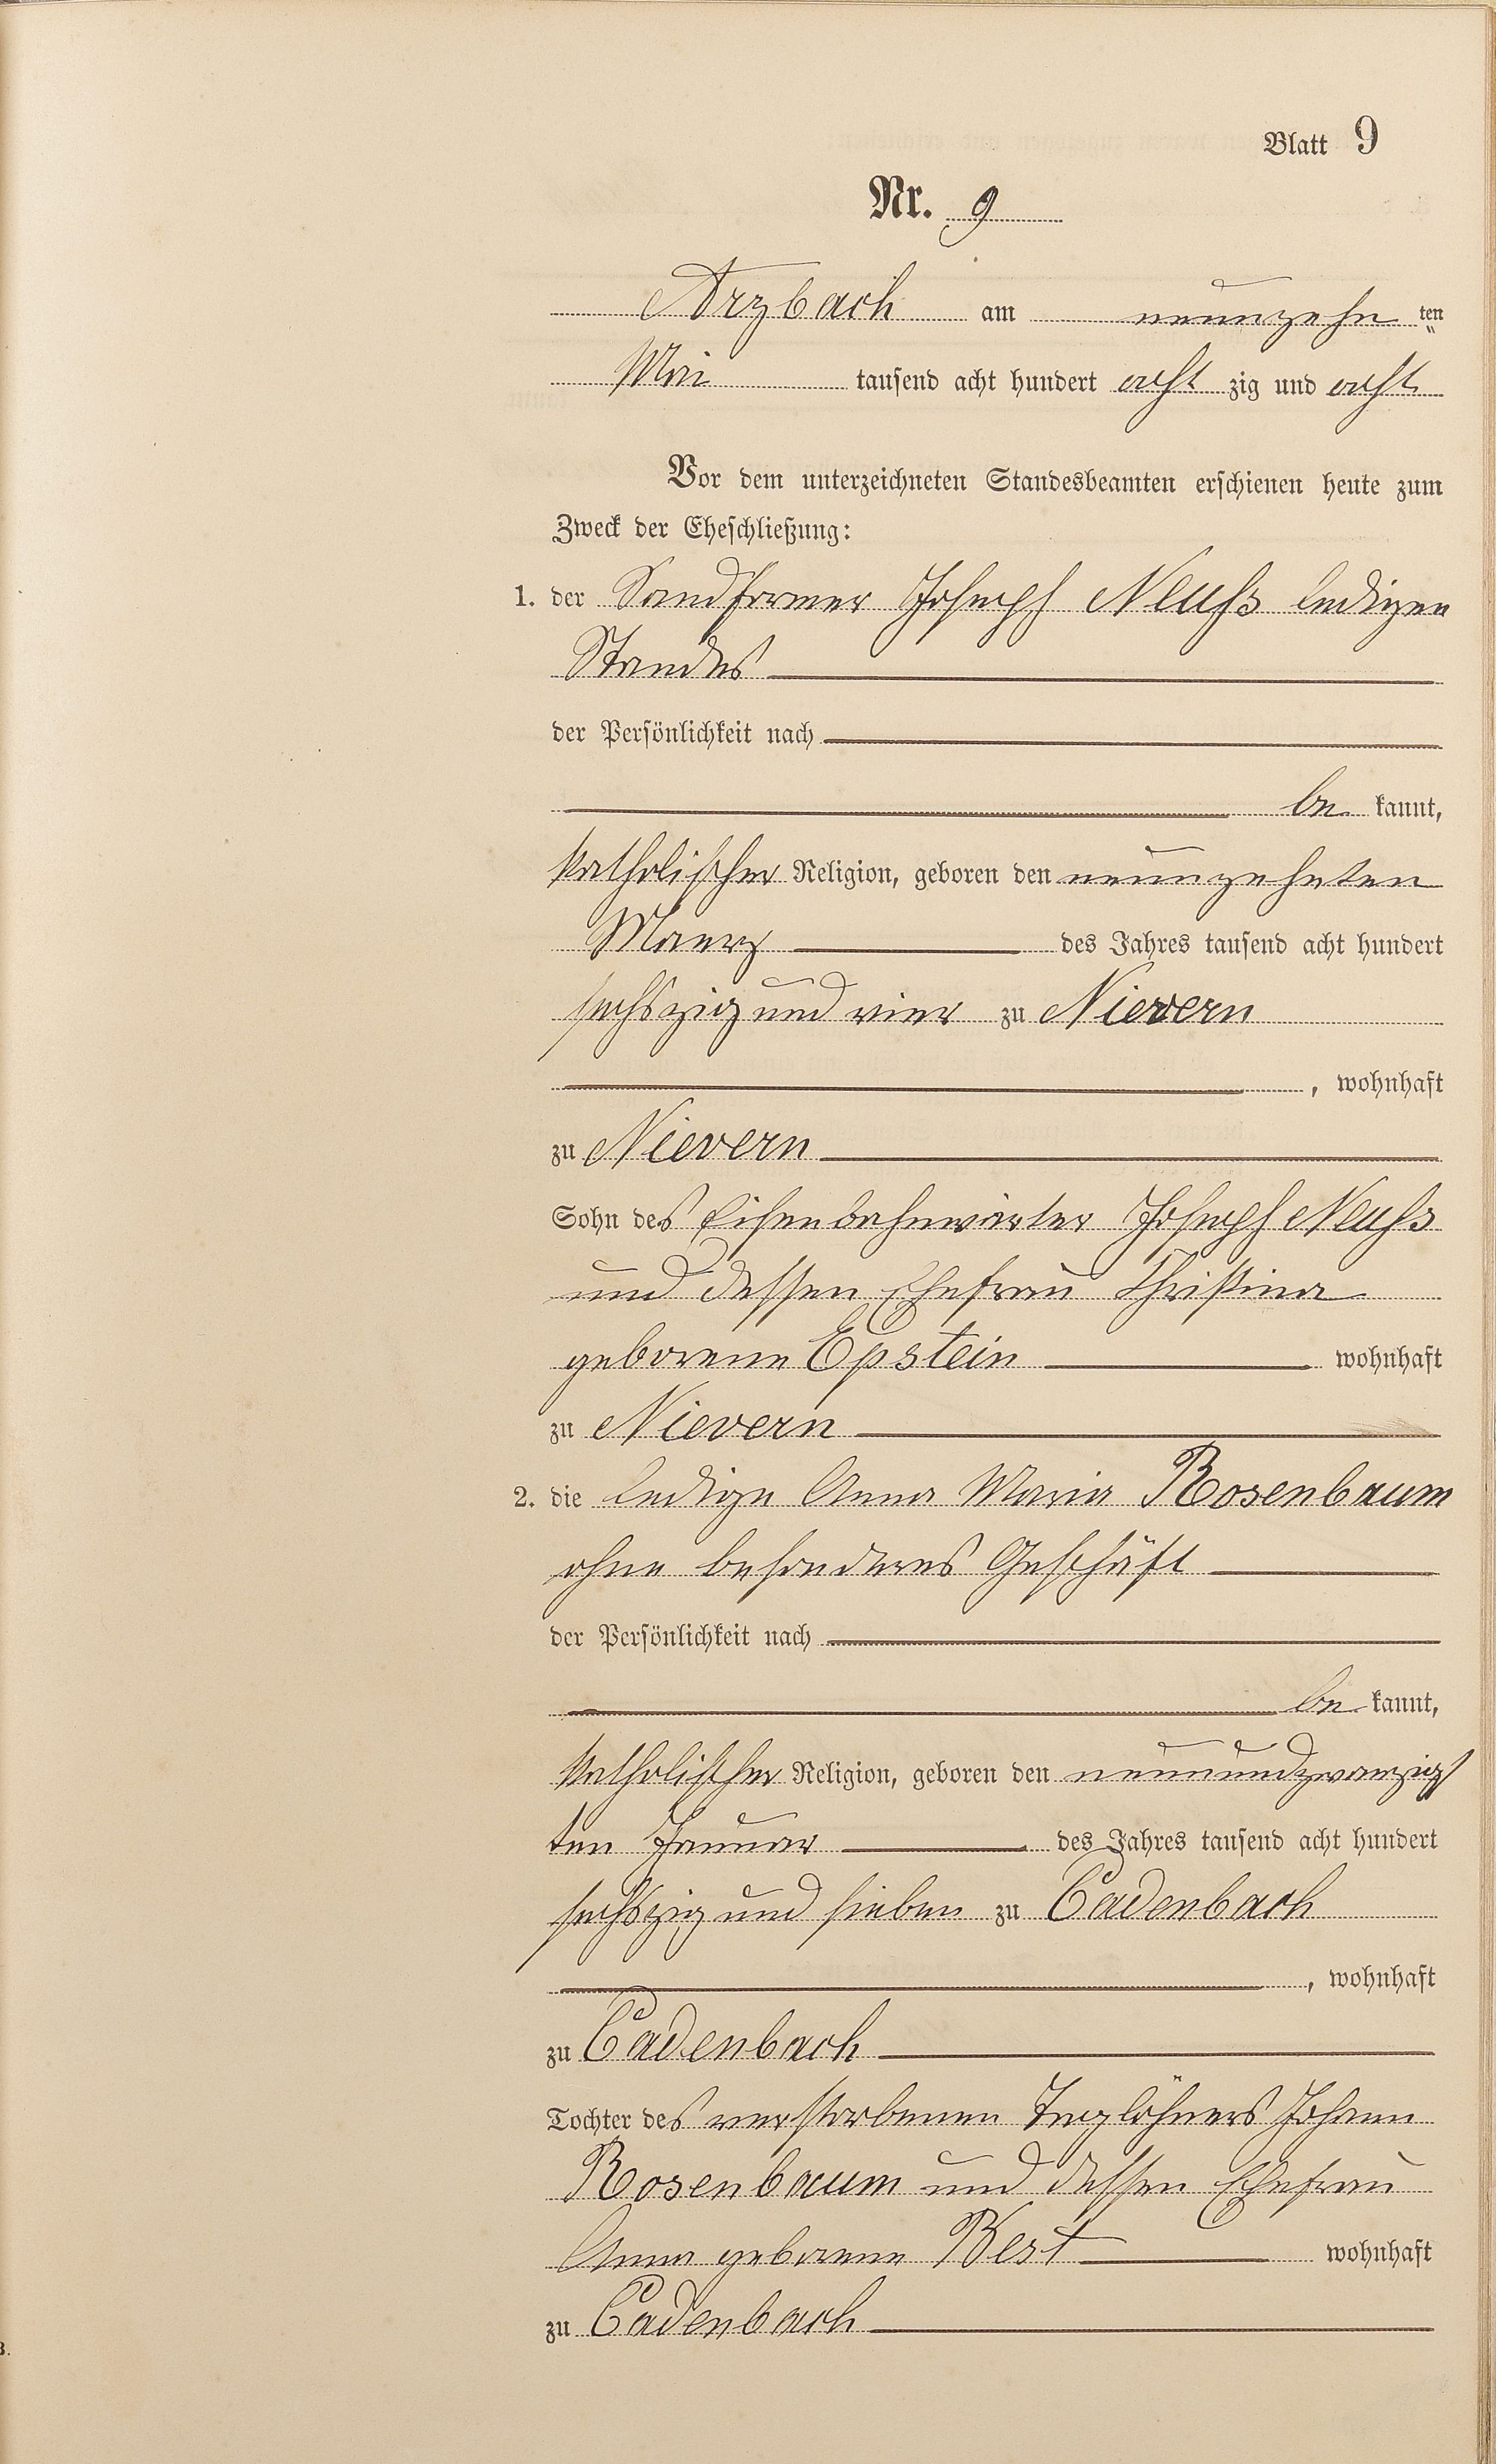 Blatt 9
Nr. 9
Arzbach am neunzehn ten
Mai tausend acht hundert acht zig und acht
Vor dem unterzeichneten Standesbeamten erschienen heute zum
Zweck der Eheschließung:
1. der Sandformer Joseph Neuß ledigen
Standes
der Persönlichkeit nach
be kannt,
katholischer Religion, geboren den neunzehnten
Maerz des Jahres tausend acht hundert
sechszig und vier zu Nievern
, wohnhaft
zu Nievern
Sohn des Eisenbahnwärter Joseph Neuß
und dessen Ehefrau Christina
geborene Epstein wohnhaft
zu Nievern
2. die ledige Anna Maria Rosenbaum
ohne besonderes Geschäft
der Persönlichkeit nach
be kannt,
katholischer Religion, geboren den neunundzwanzigs
ten Januar des Jahres tausend acht hundert
sechszig und sieben zu Cadenbach
, wohnhaft
zu Cadenbach
Tochter des verstorbenen Taglöhners Johann
Rosenbaum und dessen Ehefrau
Anna geborene Best wohnhaft
zu Cadenbach